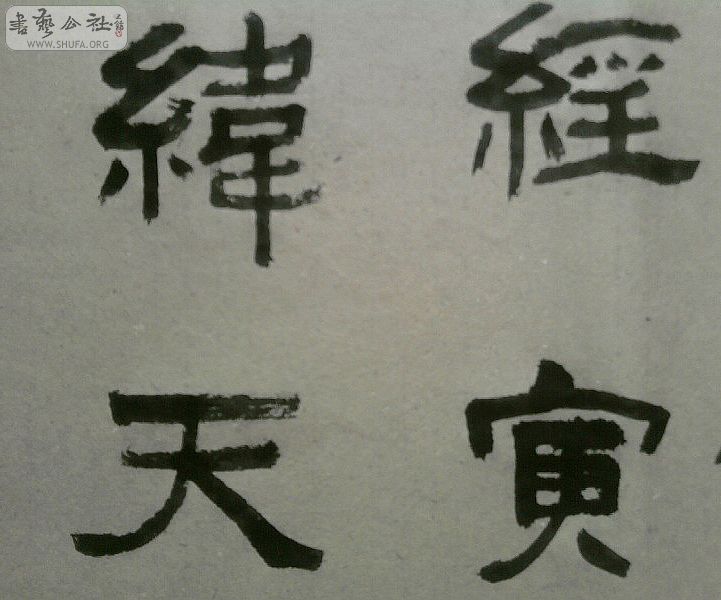 經寅
緯天
書藝公社
WWW.SHUFA.ORG